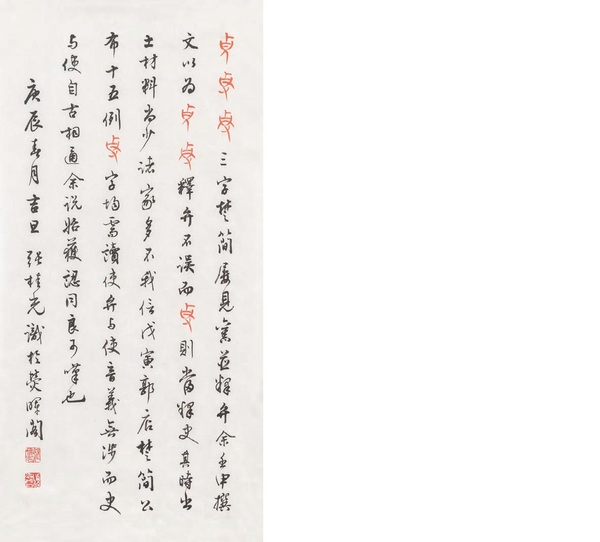 三字楚简屡見舊並釋弁余壬申撰
文以為釋弁不误而則當释史其時出
土材料尚少诸家多不我信戊寅郭店楚简公
布十五例字均需讀使弁与使音義無涉而史
与使自古相通余说始獲認同良可嘆也
庚辰春月吉旦张桂光識於熒暉閣